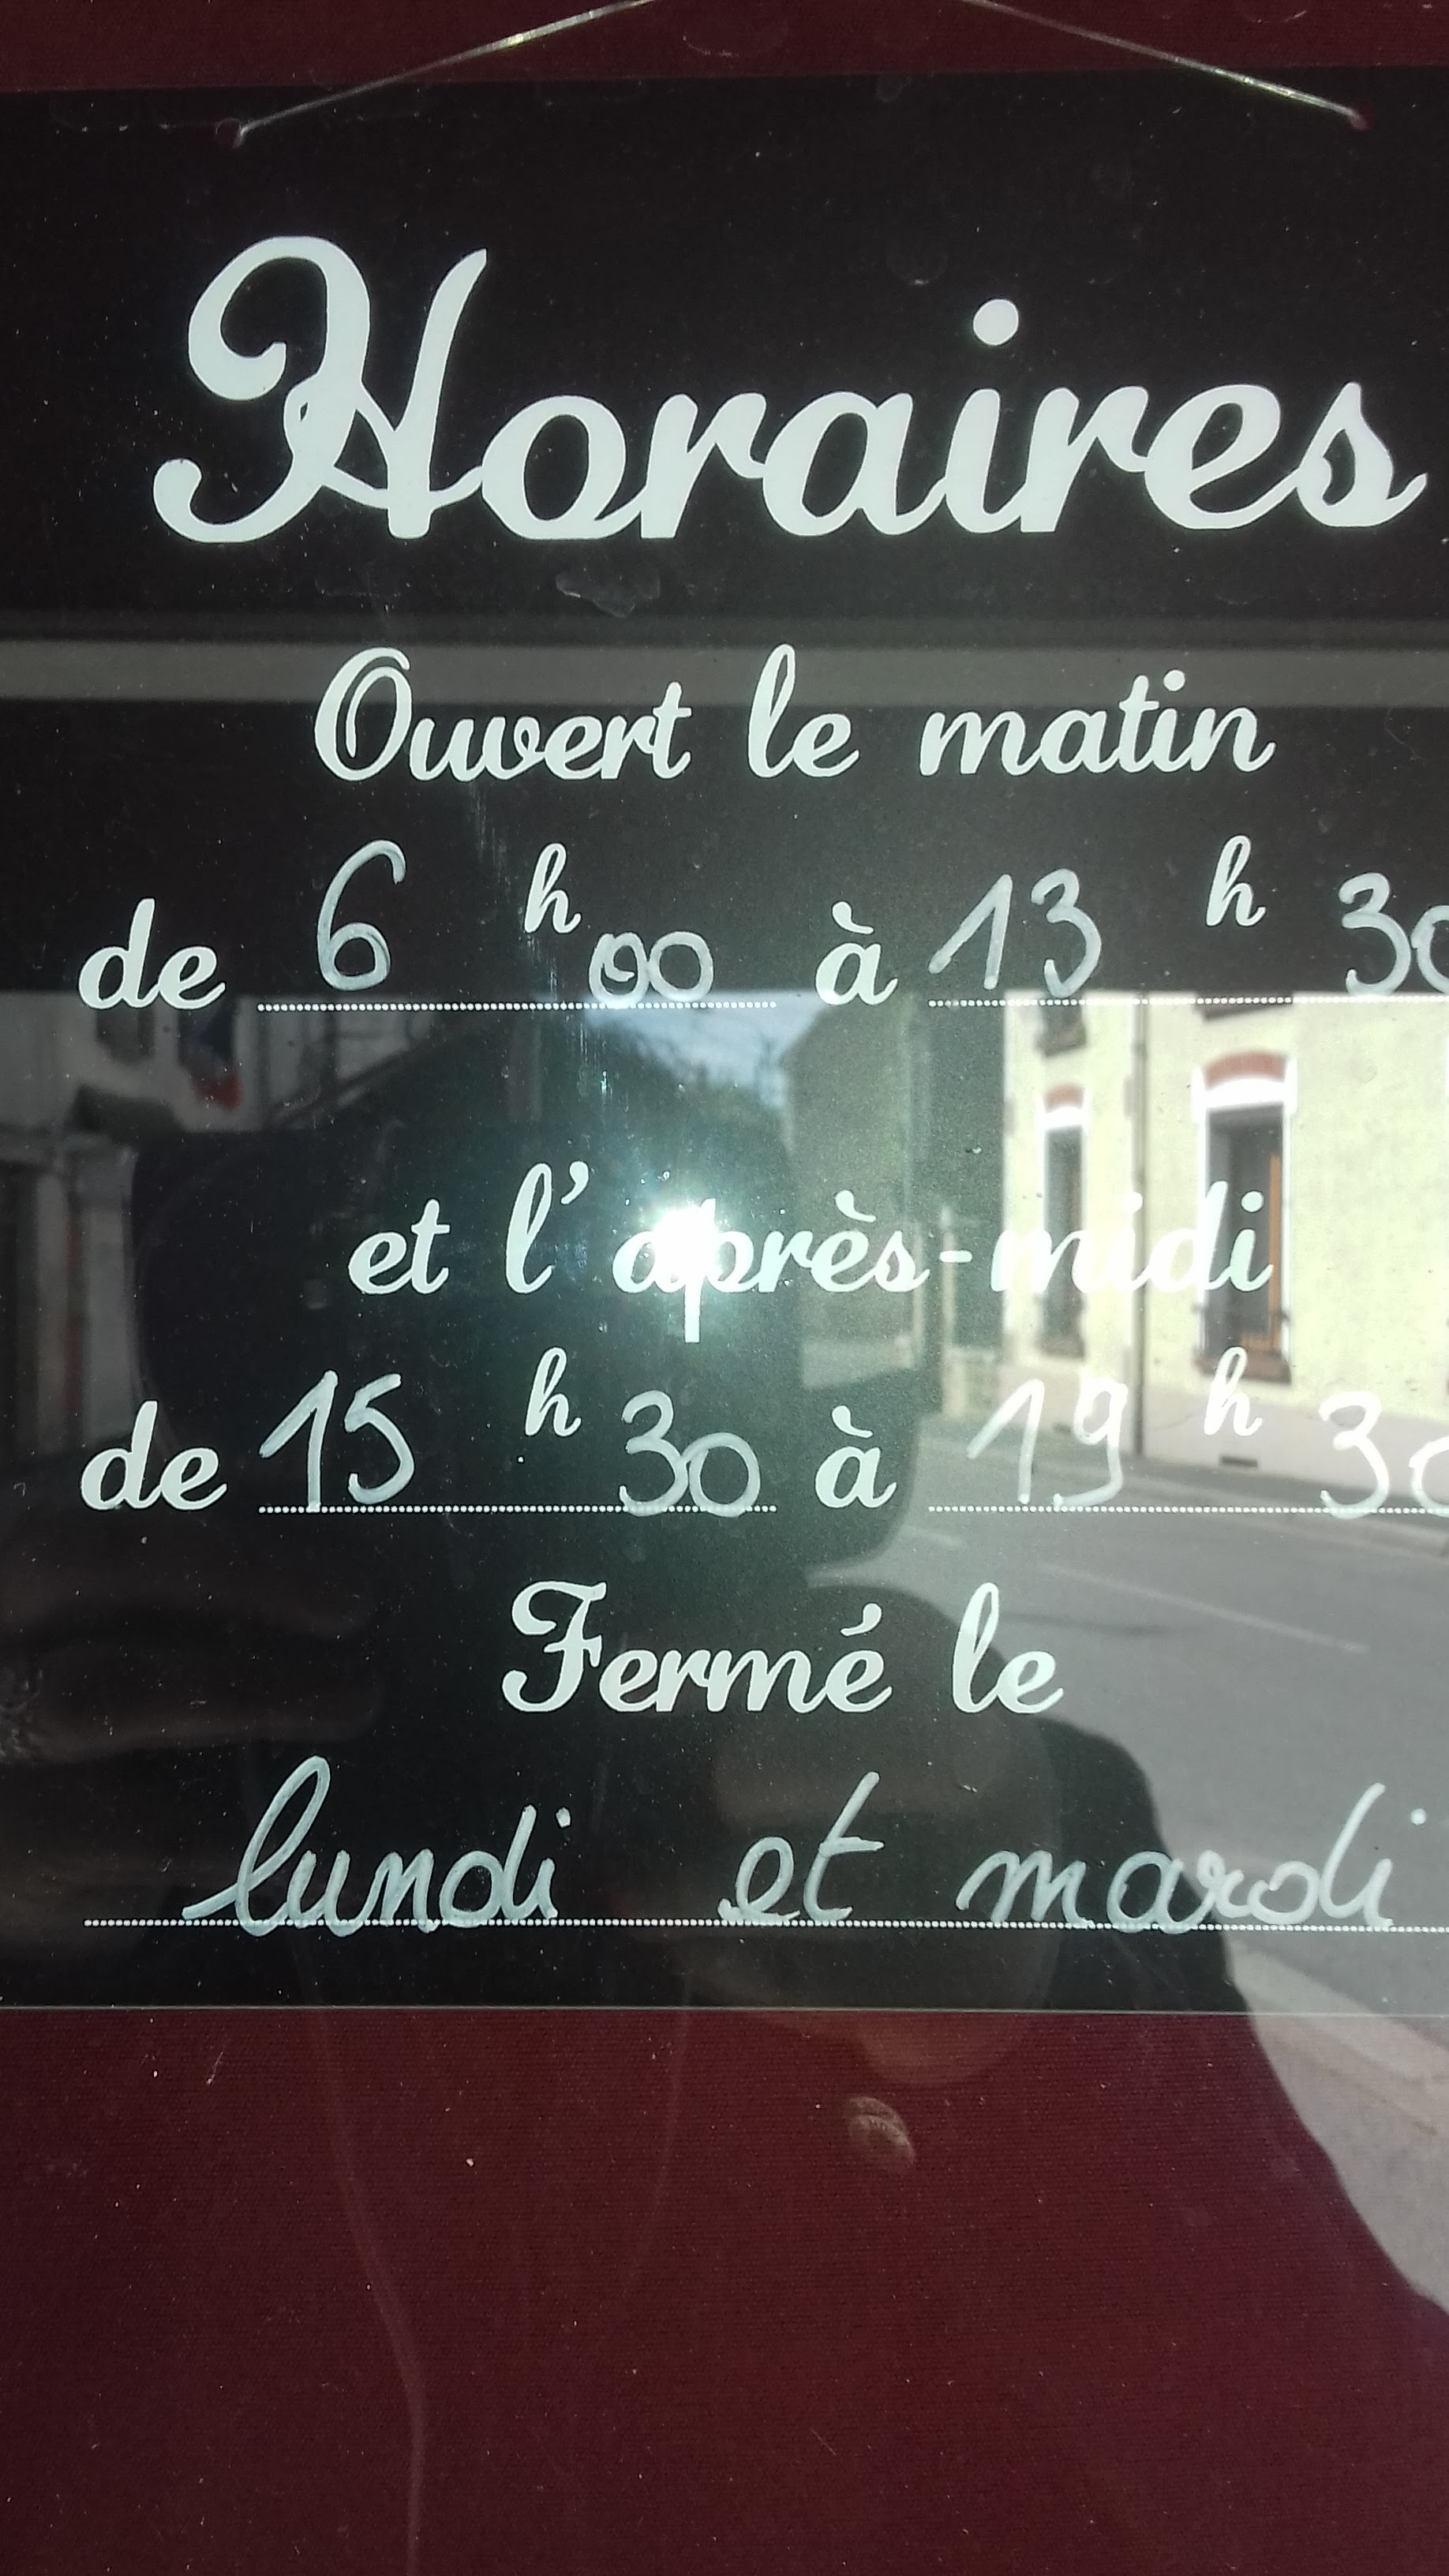 Horaires
Ouvert le matin
de 6 h 00 à 13 h 30
et l'après-midi
de 15 h 30 à 19 h 30
Fermé le
lundi et mardi